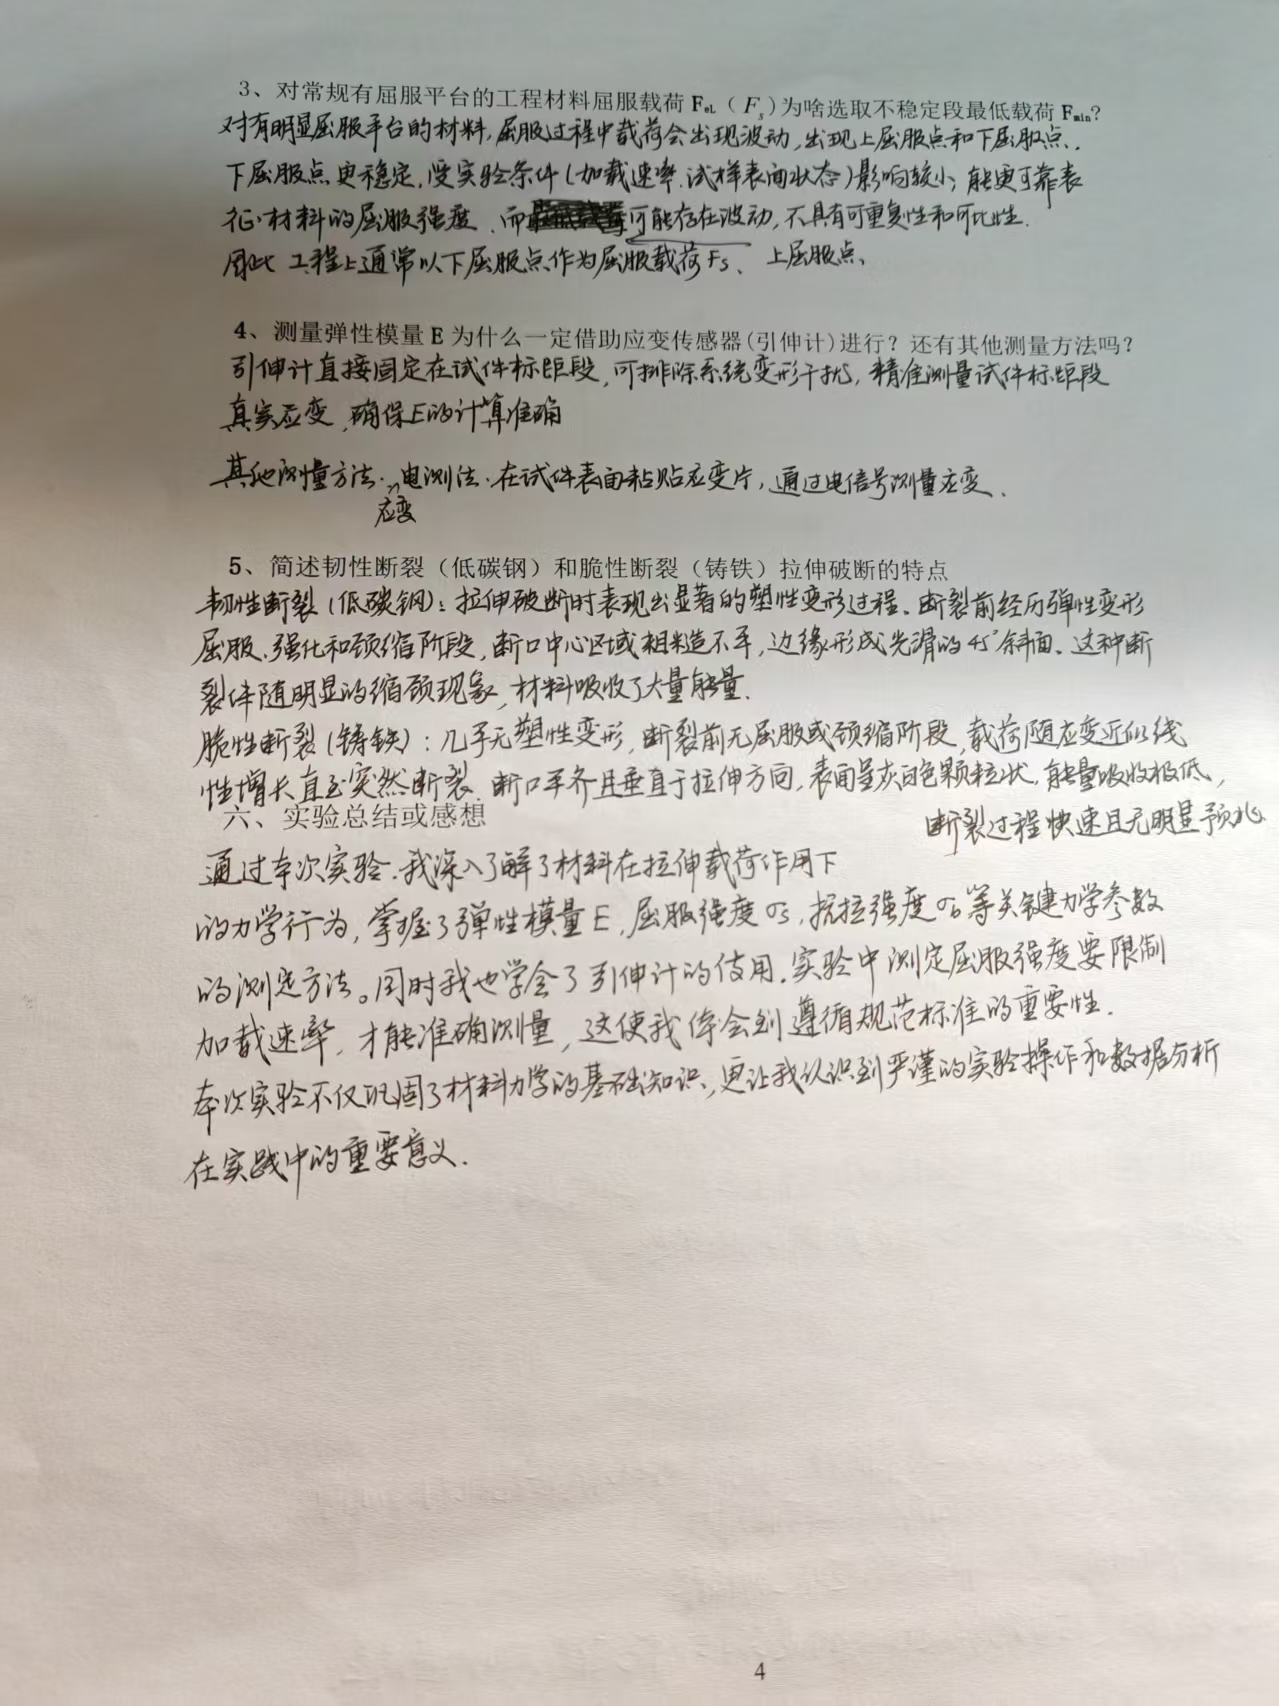 3、对常规有屈服平台的工程材料屈服载荷 FeL（Fs）为啥选取不稳定段最低载荷 Fmin?
对有明显屈服平台的材料,屈服过程中载荷会出现波动,出现上屈服点和下屈服点.
下屈服点更稳定,受实验条件(加载速率.试样表面状态)影响较小,能更可靠表
征材料的屈服强度、而可能存在波动,不具有可重复性和可比性.
因此工程上通常以下屈服点作为屈服载荷Fs、 上屈服点、
4、测量弹性模量 E 为什么一定借助应变传感器(引伸计)进行？还有其他测量方法吗？
引伸计直接固定在试件标距段,可排除系统变形干扰,精准测量试件标距段
真实应变,确保E的计算准确
其他测量方法:电测法.在试件表面粘贴应变片,通过电信号测量应变.
应变
5、简述韧性断裂（低碳钢）和脆性断裂（铸铁）拉伸破断的特点
韧性断裂(低碳钢):拉伸破断时表现出显著的塑性变形过程、断裂前经历弹性变形
屈服、强化和颈缩阶段,断口中心区域粗糙不平,边缘形成光滑的45°斜面、这种断
裂伴随明显的缩颈现象,材料吸收了大量能量.
脆性断裂(铸铁):几乎无塑性变形,断裂前无屈服或颈缩阶段,载荷随应变近似线
性增长直至突然断裂.断口平齐且垂直于拉伸方向,表面呈灰白色颗粒状,能量吸收极低,
断裂过程快速且无明显预兆
六、实验总结或感想
通过本次实验.我深入了解了材料在拉伸载荷作用下
的力学行为,掌握了弹性模量E,屈服强度σs,抗拉强度σb等关键力学参数
的测定方法。同时我也学会了引伸计的使用.实验中测定屈服强度要限制
加载速率,才能准确测量,这使我体会到遵循规范标准的重要性.
本次实验不仅巩固了材料力学的基础知识,更让我认识到严谨的实验操作和数据分析
在实践中的重要意义.
4